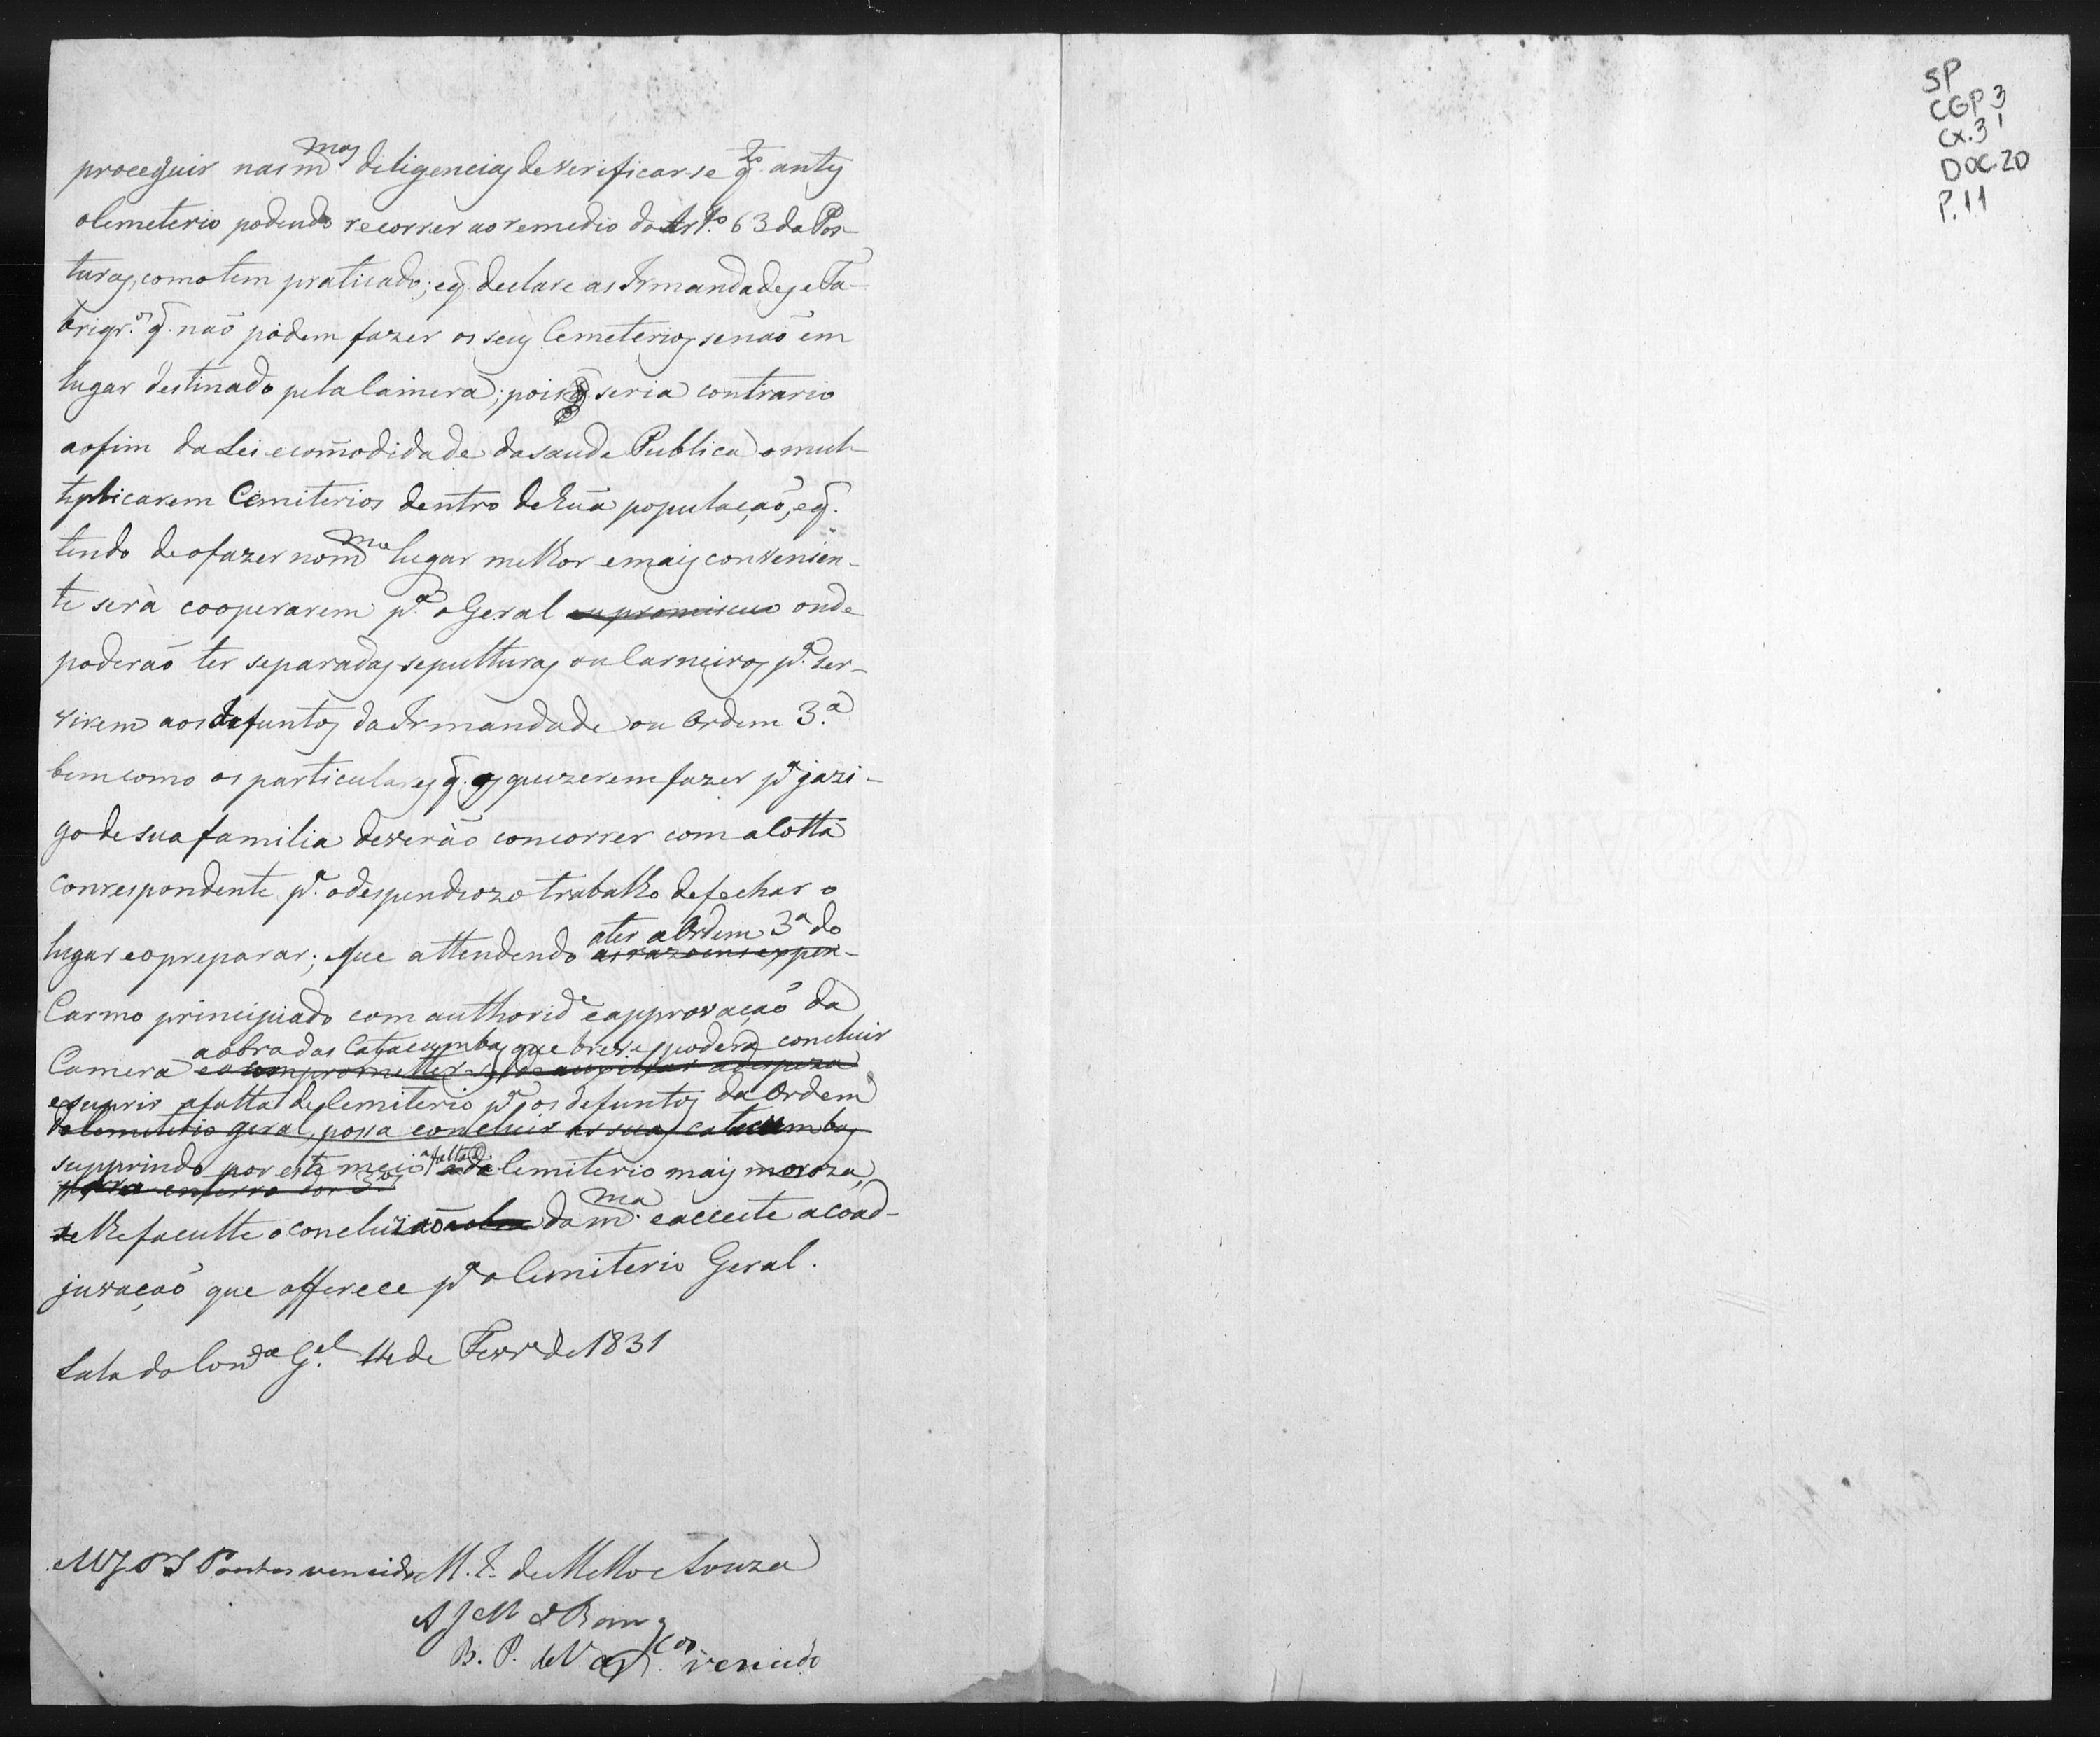 proceguir nas m.mas diligencias de verificar-se q.to antes
o Cemeterio podendo recorrer ao remedio do Art.º 63 da Pos-
turas, como tem praticado; e q. declare as Irmandades e Fa-
briqr.os q. naõ podem fazer os seus Cemeterios senaõ em
lugar destinado pela Camera; pois q. seria contrario
ao fim da Lei e com̃odidade da saude Publica o mul-
teplicarem Cemiterios dentro de huã populaçaõ, e q.
tendo de o fazer no m.mo lugar melhor e mais convenien-
te será cooperarem p.ª o Geral em promiscuo onde
poderaõ ter separadas sepulturas ou Carneiros p.ª ser-
virem aos defuntos da Irmandade ou Ordem 3.ª
bem como os particulares q. os quizerem fazer p.ª jazi-
go de sua familia deveráõ concorrer com a Cotta
conrespondente p.ª o despendiozo trabalho de fechar o
lugar e o preparar; que attendendo
a ter a Ordem 3ª do
as razoens expen-
Carmo principiado com authorid.e e approvaçaõ da
a obra das Catacumbas que breve poderá concluir
Camera e a comprometter-se de auxiliar a despeza
e suprir a falta de Cemiterio p.ª os defuntos da Ordem
do Cemiterio geral, possa concluir as suas catacumbas
supprindo por este meio a falta do Cemiterio mais moroza,
para enterro dos 3.os
se lhe faculte o concluzaõ a obra da m.ma e acceite a coad-
juvaçaõ que offerece p.ª o Cemiterio Geral.
Sala do Cons.º G.el 14 de Fevr.º de 1831
M. J. de Mello e Souza
vencido
B. P. de Vas.cos vencido
SP
CGP 3
CX. 31
DOC. 20
P. 11